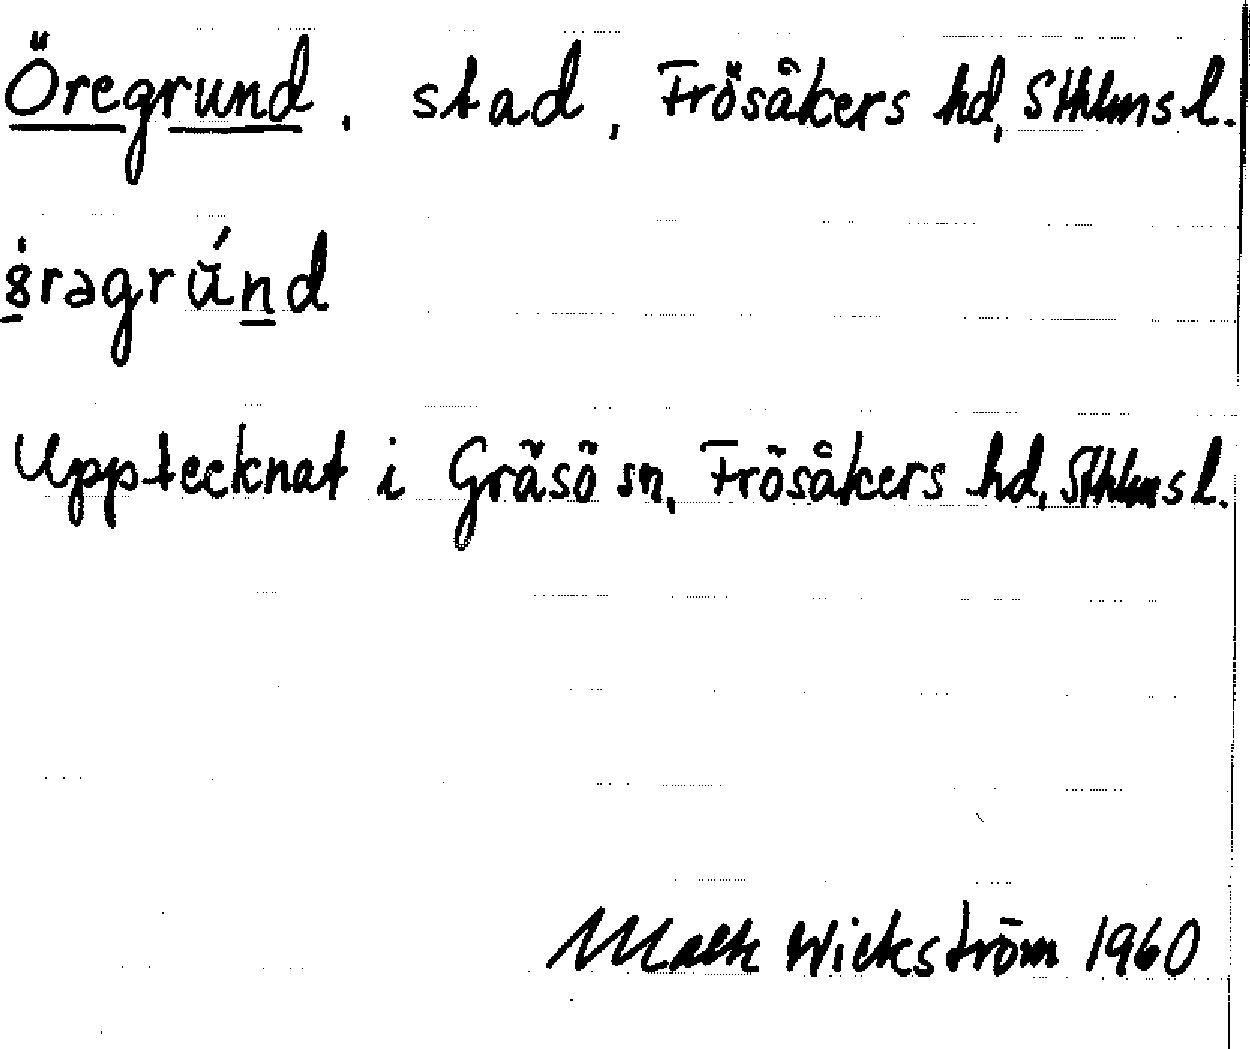 Öregrund, stad, Frösåkers hd, Sthlms l.
Upptecknat i Gräsö sn, Frösåkers hd, Sthlms l.
Wickström 1960